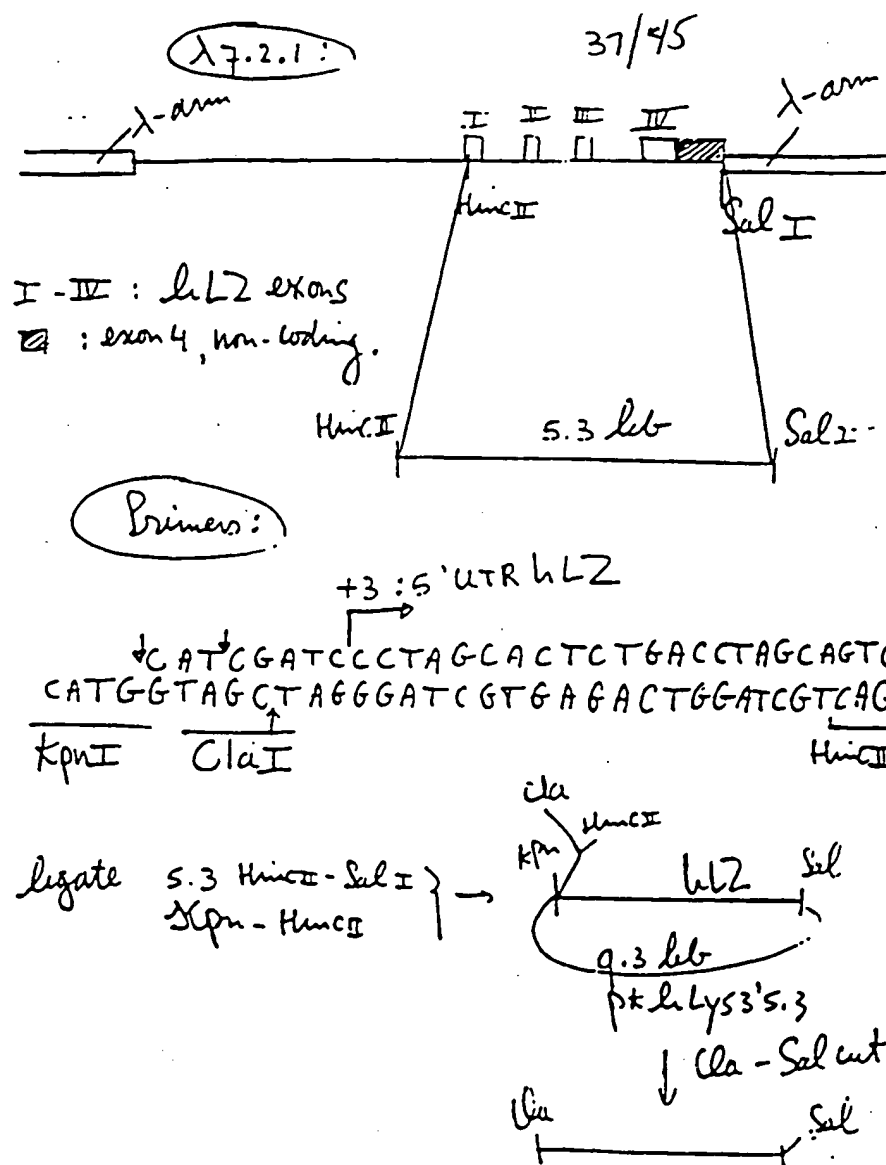 λ7.2.1:
37/45
λ-arm
λ-arm
I II III IV
Hinc II
Sal I
I - IV : hLZ exons
: exon 4, non-coding.
Hinc II 5.3 kb Sal I
Primers:
+3 : 5' UTR hLZ
CATCGATCCCTAGCACTCTGACCTAGCAGTC
CATGGTAGCTAGGGATCGTGAGACTGGATCGTCAG
KpnI ClaI HincII
Cla
HincII
Kpn
hLZ
Sal
ligate 5.3 HincII - Sal I
Kpn - HincII
9.3 kb
hLys3'5.3
Cla - Sal cut
Cla
Sal